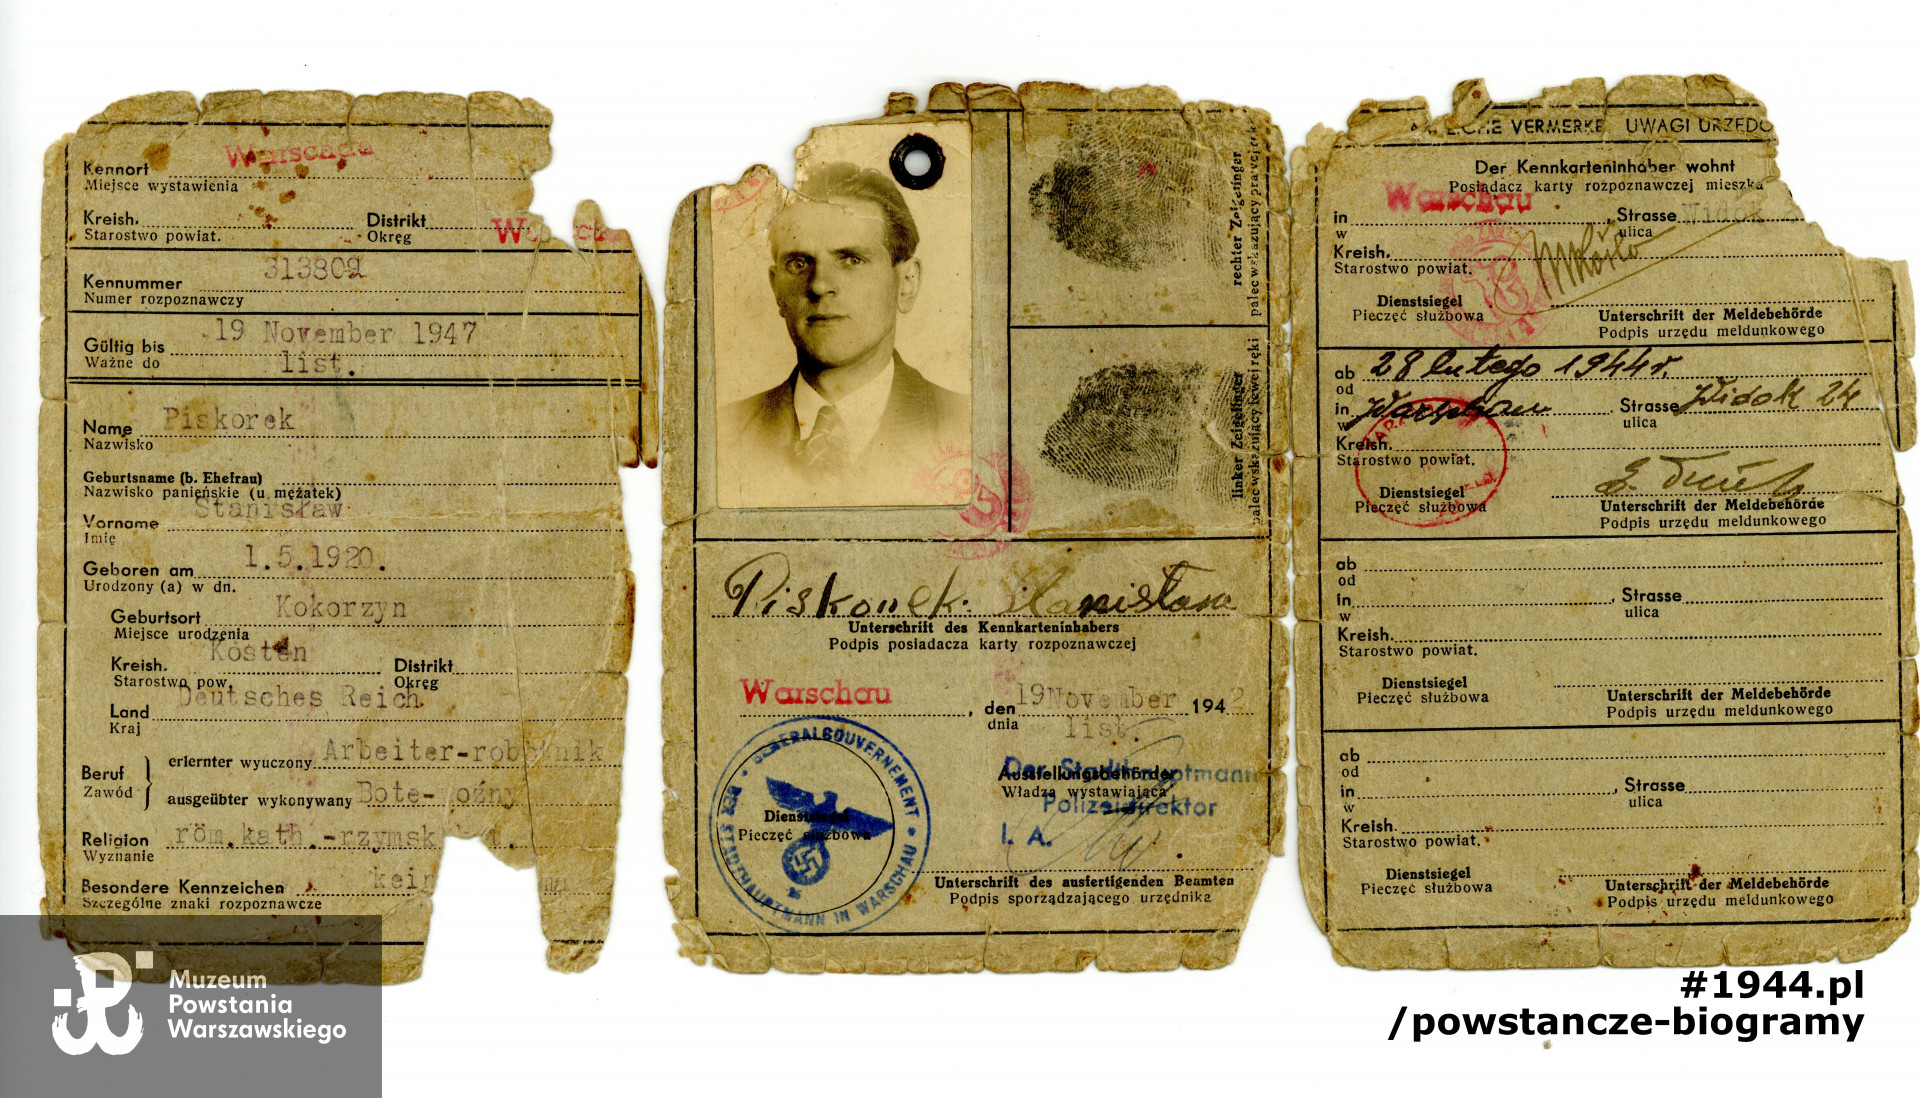 Kennort Warschau
Miejsce wystawienia
Kreish. Distrikt
Starostwo powiat. Okręg
Kennummer 313802
Numer rozpoznawczy
Gültig bis 19 November 1947
Ważne do list.
Name Piskorek
Nazwisko
Geburtsname (b. Ehefrau)
Nazwisko panieńskie (u mężatek)
Vorname Stanisław
Imię
Geboren am 1.5.1920.
Urodzony (a) w dn.
Geburtsort Kokorzyn
Miejsce urodzenia
Kreish. Kosten Distrikt
Starostwo pow. Okręg
Land Deutsches Reich
Kraj
Beruf erlernter wyuczony Arbeiter-robotnik
Zawód ausgeübter wykonywany Bote-woźny
Religion röm.kath.-rzymsk
Wyznanie
Besondere Kennzeichen
Szczególne znaki rozpoznawcze
rechter Zeigefinger
palec wskazujący prawej ręki
linker Zeigefinger
palec wskazujący lewej ręki
Piskorek Stanisław
Unterschrift des Kennkarteninhabers
Podpis posiadacza karty rozpoznawczej
Warschau, den 19 November 1942
dnia list.
GENERALGOUVERNEMENT
DER STADTHAUPTMANN IN WARSCHAU
Dienstsiegel
Pieczęć służbowa
Ausstellungsbehörde
Władza wystawiająca
Der Stadthauptmann
Polizeidirektor
I. A.
Unterschrift des ausfertigenden Beamten
Podpis sporządzającego urzędnika
VERMERKE UWAGI URZĘDO
Der Kennkarteninhaber wohnt
Posiadacz karty rozpoznawczej mieszka
in Warschau, Strasse
w ulica
Kreish.
Starostwo powiat.
Dienstsiegel
Pieczęć służbowa
Unterschrift der Meldebehörde
Podpis urzędu meldunkowego
ab 28 lutego 1944 r.
od
in Warschau, Strasse Widok 24
w ulica
Kreish.
Starostwo powiat.
Dienstsiegel
Pieczęć służbowa
Unterschrift der Meldebehörde
Podpis urzędu meldunkowego
ab
od
in, Strasse
w ulica
Kreish.
Starostwo powiat.
Dienstsiegel
Pieczęć służbowa
Unterschrift der Meldebehörde
Podpis urzędu meldunkowego
ab
od
in, Strasse
w ulica
Kreish.
Starostwo powiat.
Dienstsiegel
Pieczęć służbowa
Unterschrift der Meldebehörde
Podpis urzędu meldunkowego
Muzeum
Powstania
Warszawskiego
#1944.pl
/powstancze-biogramy